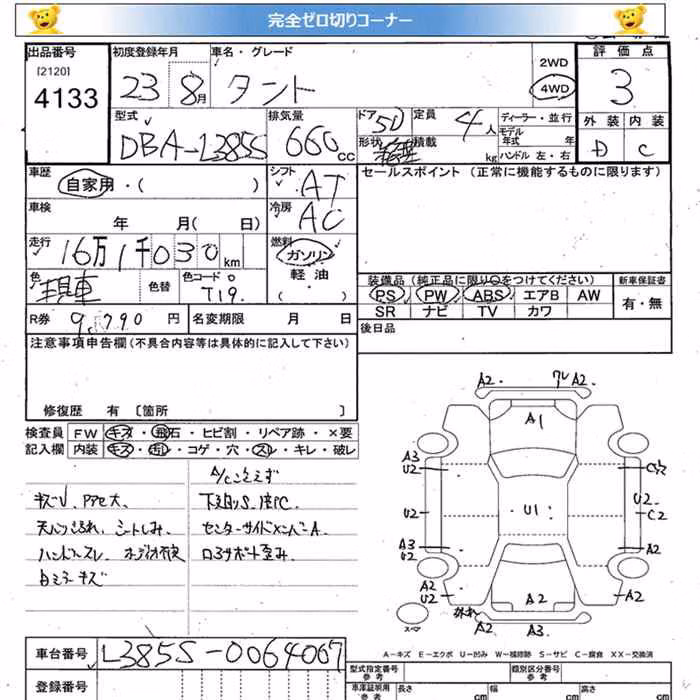 完全ゼロ切りコーナー
出品番号 初度登録年月 車名・グレード 評価点
[2120]
4133
23 8月 タント
2WD
4WD
3
型式 排気量 ドア 定員 ディーラー・並行 外装 内装
DBA-L385S 660 CC 5D 4人
形状 積載 kg
モデル年式 年
ハンドル 左・右
D C
車歴 シフト セールスポイント (正常に機能するものに限ります)
自家用・( )
AT
車検 冷房
年 月( 日) AC
走行 燃料
16万1千030km ガソリン
軽油
( )
色 色替 色コード
現車 T19
装備品 (純正品に限り○をつけてください) 新車保証書
PS PW ABS エアB AW 有・無
SR ナビ TV カワ
R券 9,790円 名変期限 月 日
後日品
注意事項申告欄(不具合内容等は具体的に記入して下さい)
修復歴 有 [箇所 ]
検査員 FW キズ・飛石・ヒビ割・リペア跡・×要
記入欄 内装 キズ・汚レ・コゲ・穴・スレ・キレ・破レ
A/C
シートしみ、
ハンドルスレ
キズ
A2 A2
A1
A3
U2
U2 U1 U2
C2
A3
U2 A2
A2
U2 A2 A2
A2 A3
スペア
A-キズ E-エクボ U-凹み W-補修跡 S-サビ C-腐食 XX-交換済
車台番号 L385S-0064067
型式指定番号 参考 類別区分番号 参考
登録番号 車庫証明用 参考 長さ cm 幅 cm 高さ cm